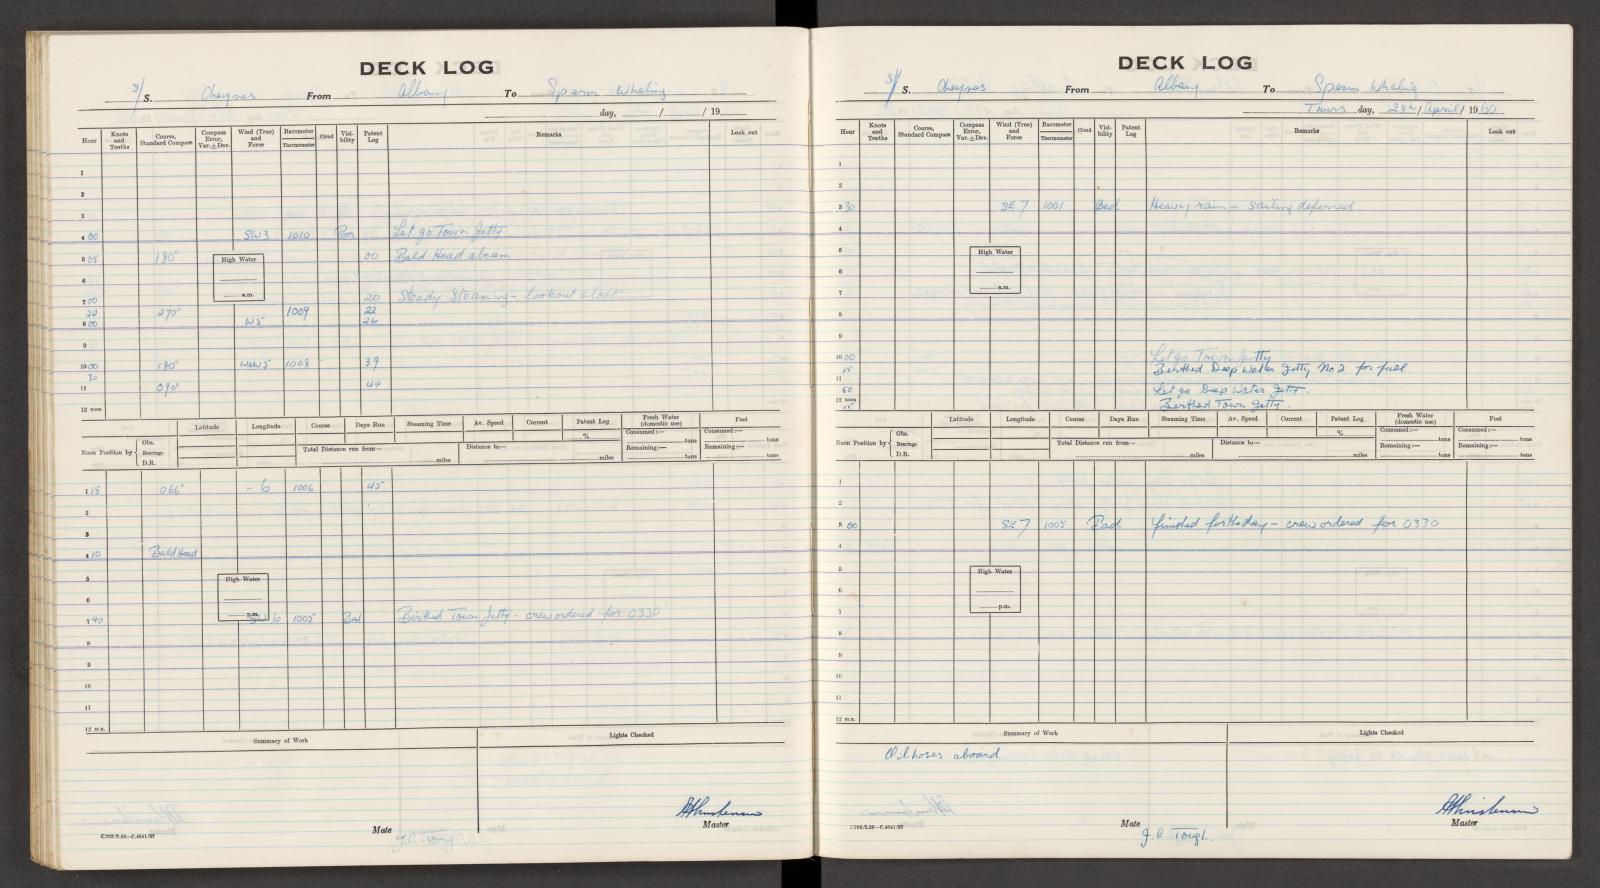 DECK LOG
S/ S. Cheynes From Albany To Sperm Whaling
day, / / 19
Hour Knots and Tenths Course, Standard Compass Compass Error, Var. ± Dev. Wind (True) and Force Barometer Thermometer Cloud Visibility Patent Log Remarks Look out
1
2
3
4 00 SW3 1010 Poor Let go Town Jetty
5 05 180° 00 Bald Head abeam
High Water
6
a.m.
7 00 20 Steady Steaming - lookout aloft
20 270° 1009 22
8 00 W5 26
9
10 00 180° WNW5 1008 39
30
11 090° 44
12 noon
Latitude Longitude Course Days Run Steaming Time Av. Speed Current Patent Log % Fresh Water (domestic use) Fuel
Noon Position by Obs. Bearings D.R. Total Distance run from— miles Distance to— miles Consumed:— tons Remaining:— tons Consumed:— tons Remaining:— tons
1 15 066° - 6 1006 45
2
3
4 10 Bald Head
5
High Water
6
p.m.
7 40 SW 6 1005 Bad Birthed Town Jetty - crew ordered for 0330
8
9
10
11
12 m.n.
Summary of Work Lights Checked
Master
Mate
C.702/2.58—C.4641/57
DECK LOG
S/ S. Cheynes From Albany To Sperm Whaling
Thurs day, 28th / April / 1960
Hour Knots and Tenths Course, Standard Compass Compass Error, Var. ± Dev. Wind (True) and Force Barometer Thermometer Cloud Visibility Patent Log Remarks Look out
1
2
3 30 SE 7 1001 Bad Heavy rain - sailing deferred
4
5
High Water
6
a.m.
7
8
9
10 00 Let go Town Jetty
15 Berthed Deep Water Jetty No 2 for fuel
11
50 Let go Deep Water Jetty.
12 noon
15 Berthed Town Jetty.
Latitude Longitude Course Days Run Steaming Time Av. Speed Current Patent Log % Fresh Water (domestic use) Fuel
Noon Position by Obs. Bearings D.R. Total Distance run from— miles Distance to— miles Consumed:— tons Remaining:— tons Consumed:— tons Remaining:— tons
1
2
3 00 SE 7 1005 Bad finished for the day - crew ordered for 0330
4
5
High Water
6
p.m.
7
8
9
10
11
12 m.n.
Summary of Work Lights Checked
Oil hoses aboard
Master
Mate
J. A. Tough.
C.702/2.58—C.4641/57